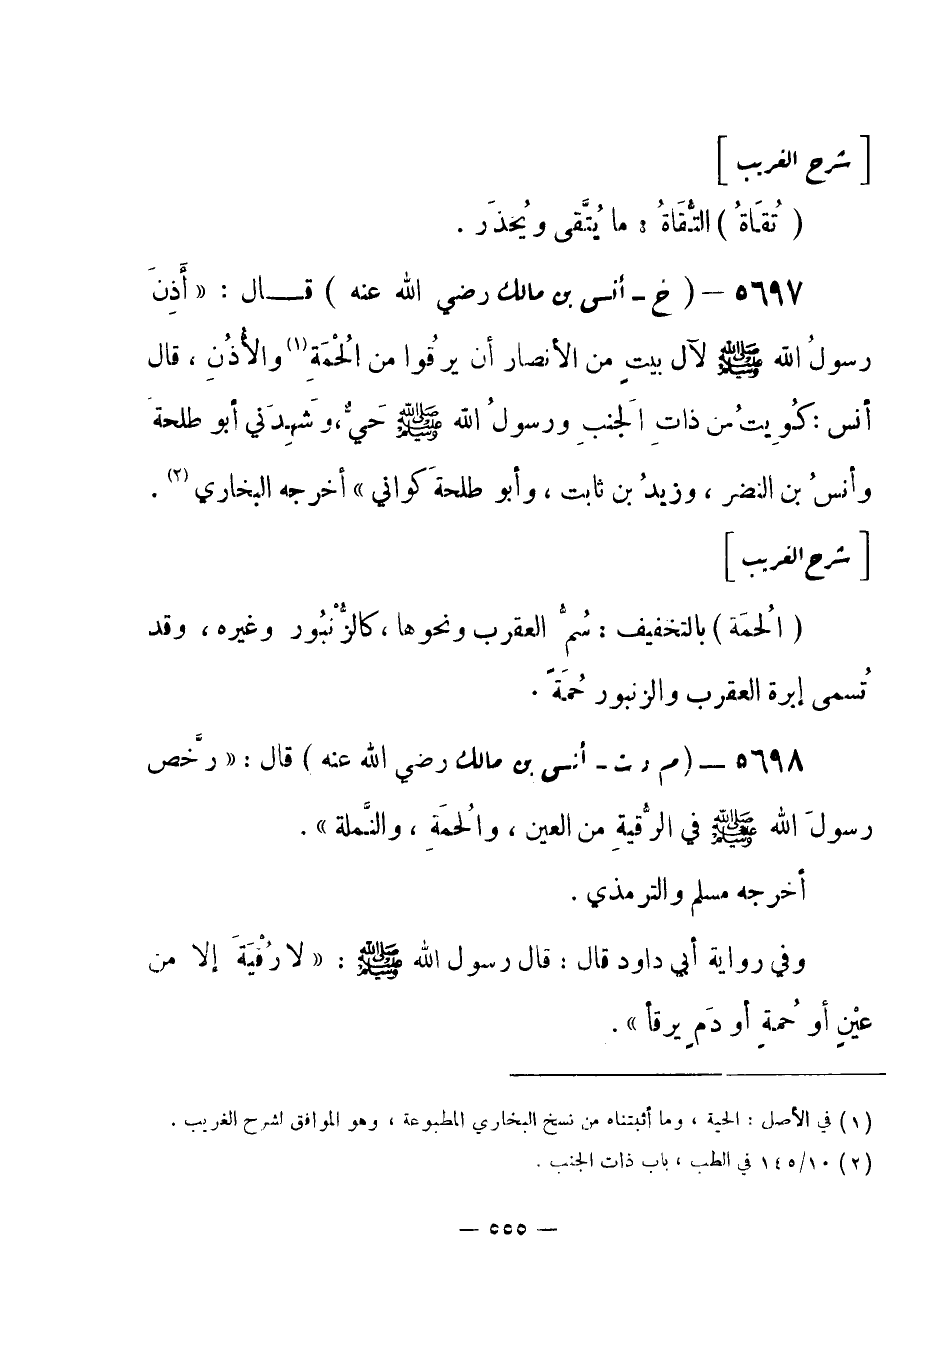 [ شرح الغريب ]
( تُقَاةُ ) التُّقَاةُ : ما يُتَّقى ويُحْذَر .
٥٦٩٧ — ( خ - أنس بن مالك رضي الله عنه ) قـــال : « أَذِنَ
رسولُ الله ﷺ لآل بيتٍ من الأنصار أن يرقُوا من الحُمْةِ (١) والأُذُنِ ، قال
أنس : كُوِيتُ من ذاتِ الجَنبِ ورسولُ الله ﷺ حَيٌّ ، وشَهِدَني أبو طلحةَ
وأنسُ بن النضر ، وزيدُ بن ثابت ، وأبو طلحةَ كواني » أخرجه البخاري (٢) .
[ شرح الغريب ]
( الحُمَة ) بالتخفيف : سُمُّ العقرب ونحوها ، كالزُّنْبُور وغيره ، وقد
تُسمى إبرة العقرب والزنبور حُمَةً .
٥٦٩٨ — ( م د ت - أنس بن مالك رضي الله عنه ) قال : « رخَّص
رسولَ الله ﷺ في الرُّقيةِ من العين ، والحُمَةِ ، والنَّملة » .
أخرجه مسلم والترمذي .
وفي رواية أبي داود قال : قال رسول الله ﷺ : « لا رُقْيَةَ إلا من
عيْنٍ أو حُمةٍ أو دَمٍ يرقأ » .
(١) في الأصل : الحية ، وما أثبتناه من نسخ البخاري المطبوعة ، وهو الموافق لشرح الغريب .
(٢) ١٤٥/١٠ في الطب ، باب ذات الجنب .
— ٥٥٥ —